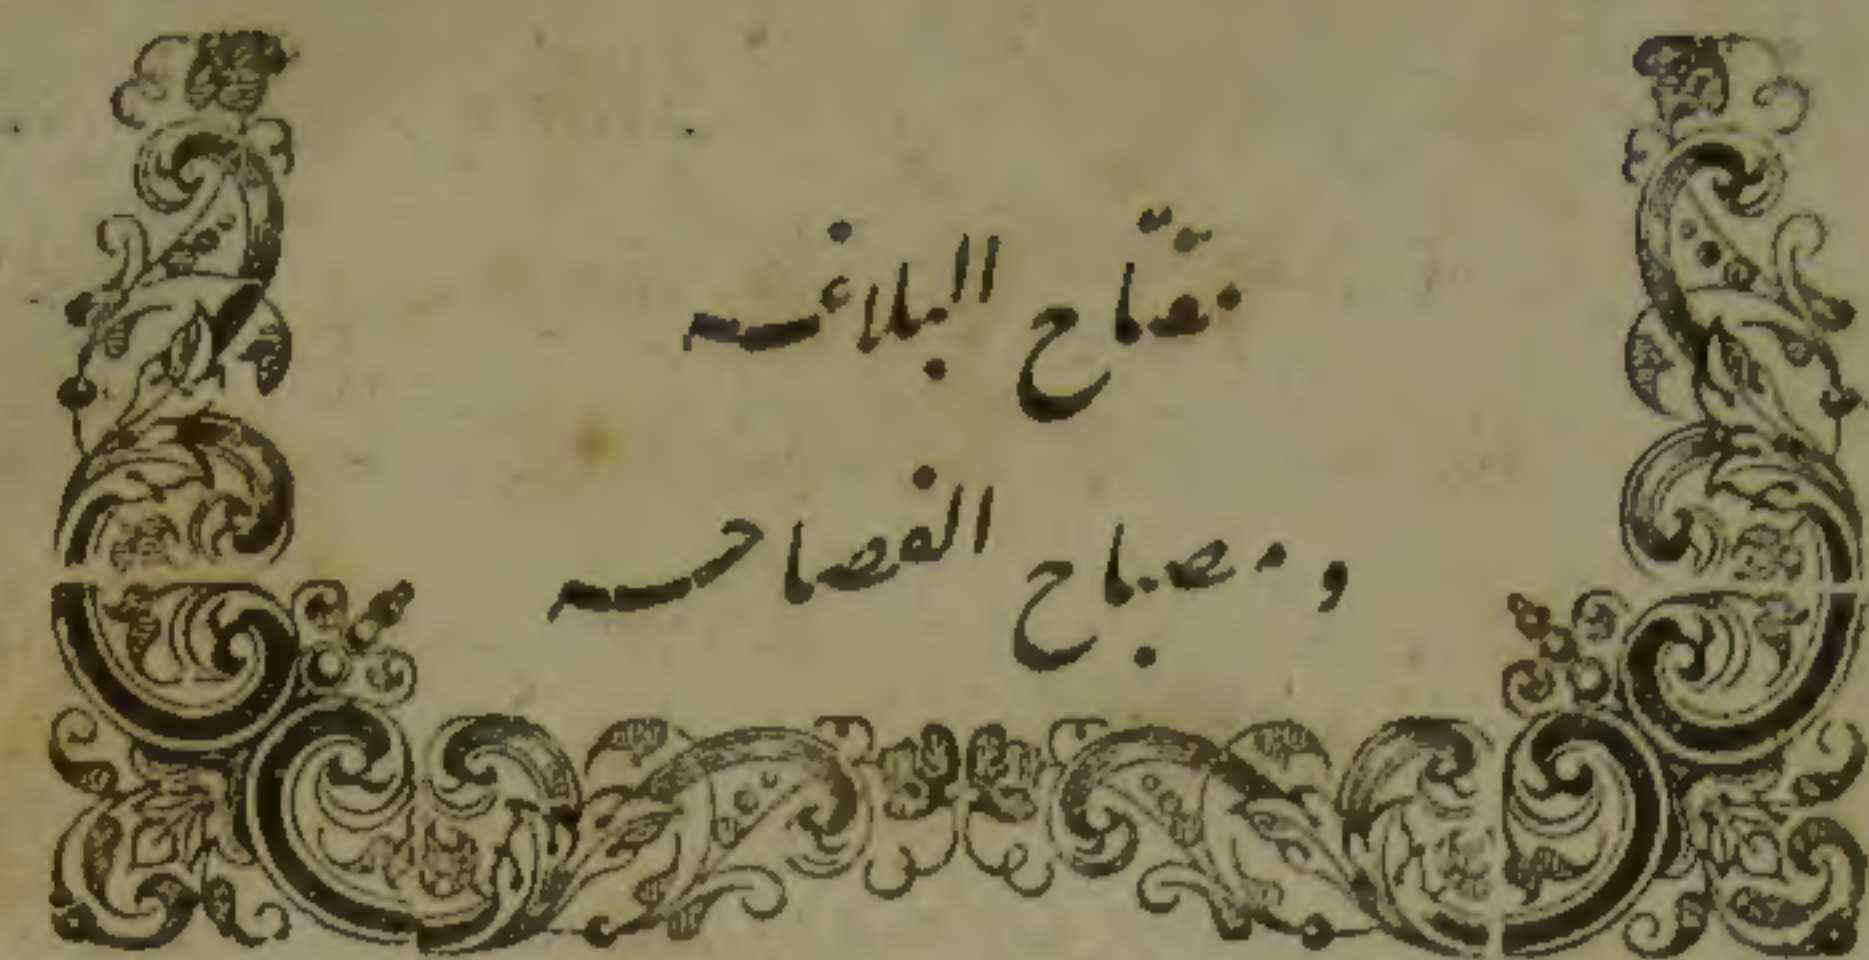 مفتاح البلاغه
و مصباح الفصاحه